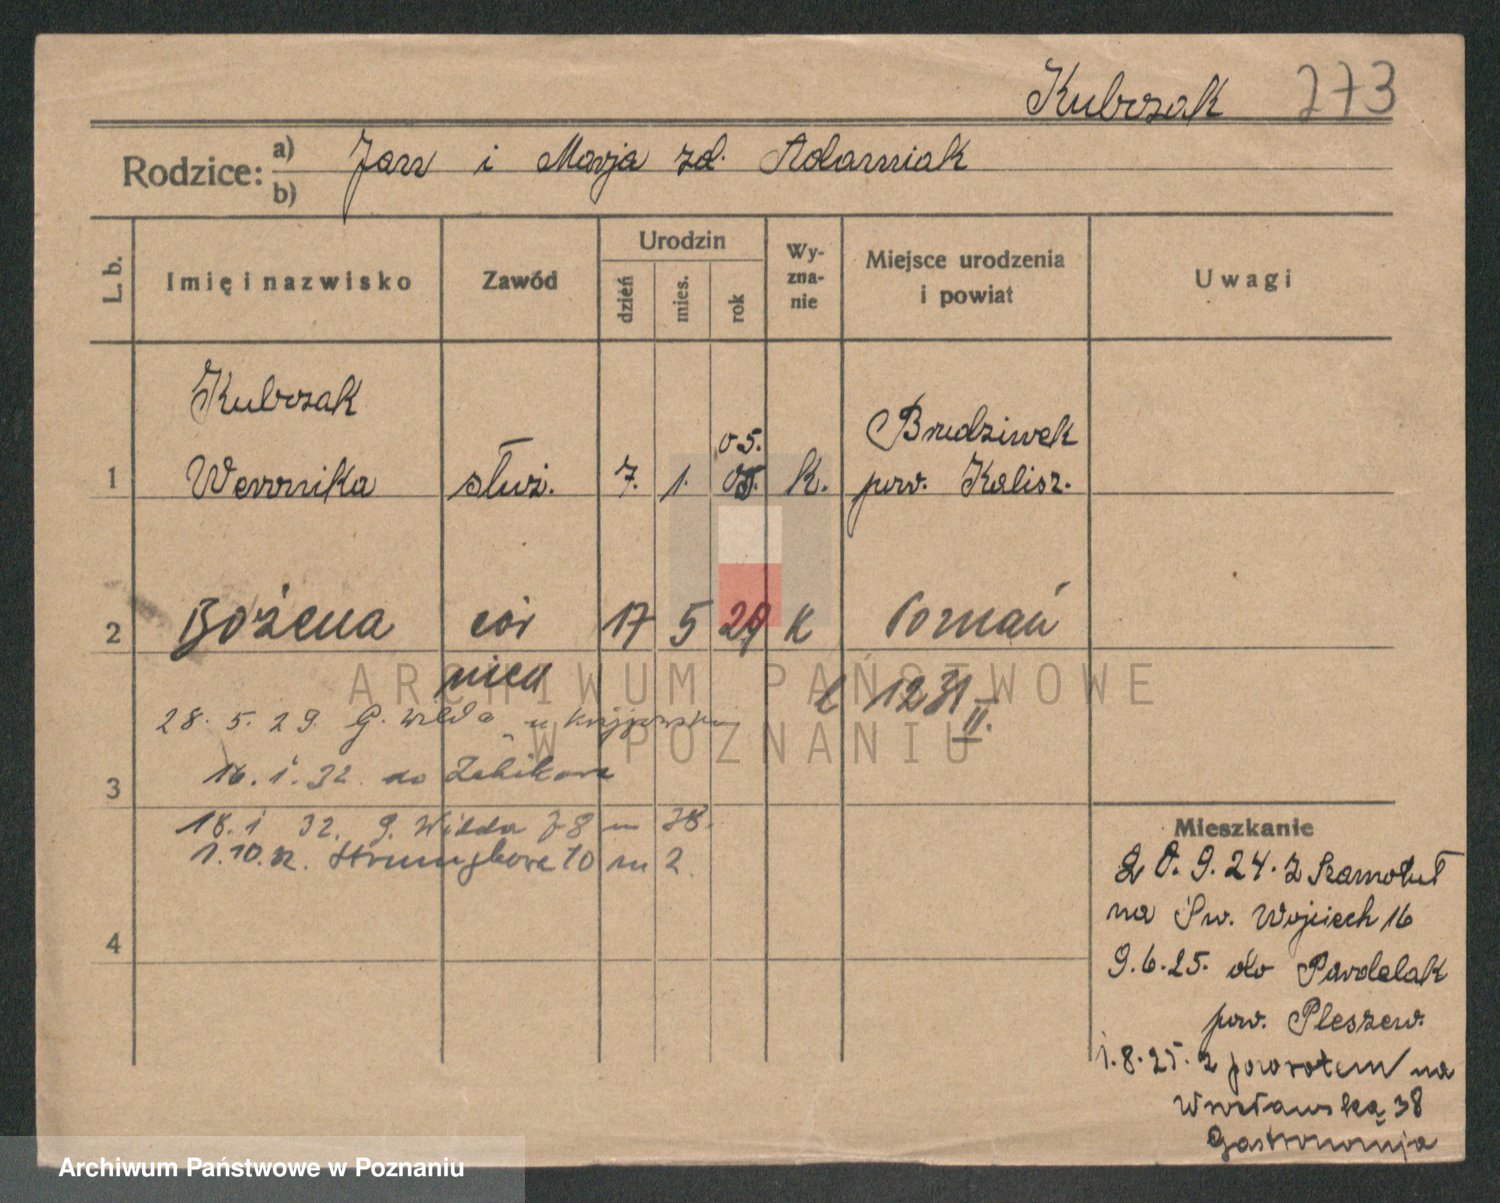 Kubrzak 273
Rodzice: a) Jan i Marja zd. Adamniak
b)
L. b. Imię i nazwisko Zawód Urodzin Wyznanie Miejsce urodzenia i powiat Uwagi
dzień mies. rok
Kubrzak
05.
Brudziwek
1 Weronika służ. 7. 1. k. pow. Kalisz.
2 Bożena cór 17 5 29 k Poznań
nica
l 1231 II.
28. 5. 29. G. Wilda u
16. 1. 32 do Żabikowa
3
18. 1 32. G. Wilda 78 m 38.
1. 10. 32. 10 m 2.
4
Mieszkanie
20. 9. 24. z Szamotuł
na Św. Wojciech 16
9. 6. 25. do Pardelak
pow. Pleszew.
1. 8. 25. z powrotem na
Wrocławska 38
Gastronomja
ARCHIWUM PAŃSTWOWE
W POZNANIU
Archiwum Państwowe w Poznaniu